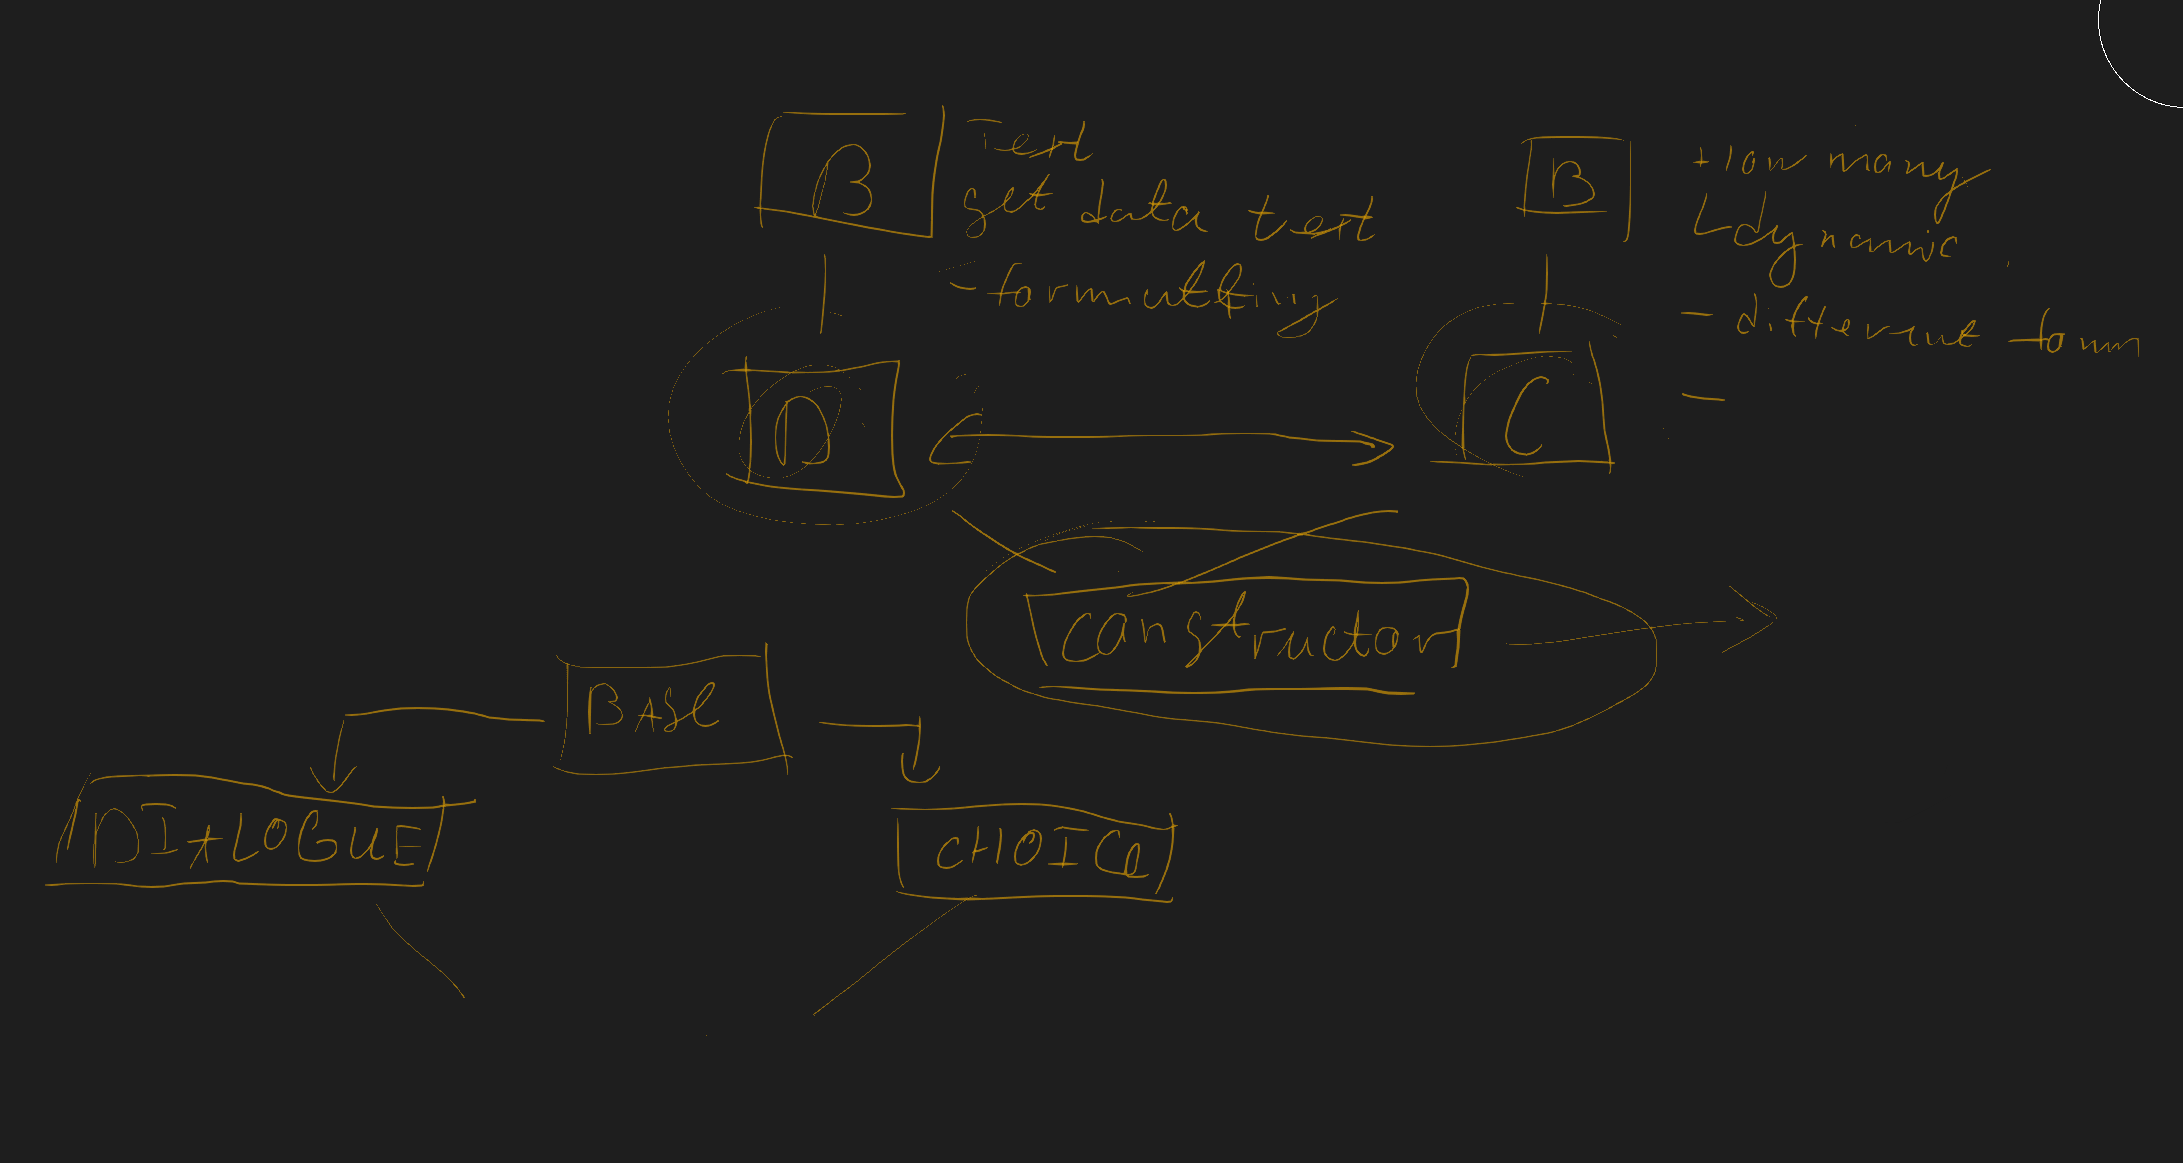 B
Text
get data text
- formatting
B
How many
dynamic
- different form
-
D
C
constructor
BASE
DIALOGUE
CHOICE